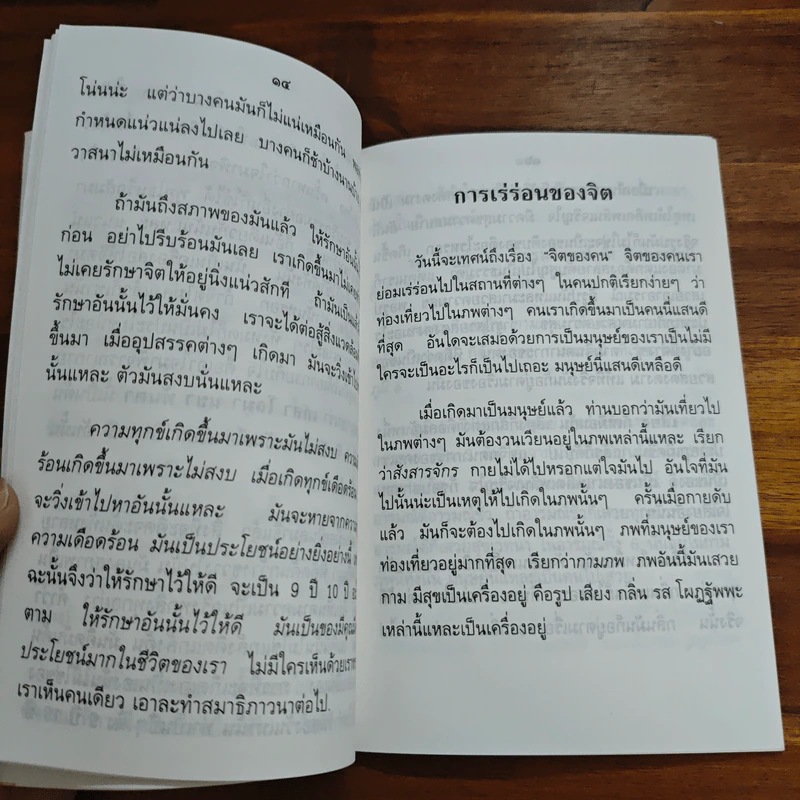 ๑๔
โน่นน่ะ แต่ว่าบางคนมันก็ไม่แน่เหมือนกัน
กำหนดแน่วแน่ลงไปเลย บางคนก็ช้าบ้างนานบ้าง
วาสนาไม่เหมือนกัน
ถ้ามันถึงสภาพของมันแล้ว ให้รักษาอันนั้นไว้
ก่อน อย่าไปรีบร้อนมันเลย เราเกิดขึ้นมาไม่เคย
ไม่เคยรักษาจิตให้อยู่นิ่งแน่วสักที ถ้ามันเป็นแล้ว
รักษาอันนั้นไว้ให้มั่นคง เราจะได้ต่อสู้สิ่งแวดล้อม
ขึ้นมา เมื่ออุปสรรคต่างๆ เกิดมา มันจะวิ่งเข้า
นั้นแหละ ตัวมันสงบนั่นแหละ
ความทุกข์เกิดขึ้นมาเพราะมันไม่สงบ ความ
ร้อนเกิดขึ้นมาเพราะไม่สงบ เมื่อเกิดทุกข์เดือดร้อน
จะวิ่งเข้าไปหาอันนั้นแหละ มันจะหายจากความ
ความเดือดร้อน มันเป็นประโยชน์อย่างยิ่งอย่างนี้
ฉะนั้นจึงว่าให้รักษาไว้ให้ดี จะเป็น 9 ปี 10 ปี
ตาม ให้รักษาอันนั้นไว้ให้ดี มันเป็นของมีคุณ
ประโยชน์มากในชีวิตของเรา ไม่มีใครเห็นด้วยเรา
เราเห็นคนเดียว เอาละทำสมาธิภาวนาต่อไป.
การเร่ร่อนของจิต
วันนี้จะเทศน์ถึงเรื่อง "จิตของคน" จิตของคนเรา
ย่อมเร่ร่อนไปในสถานที่ต่างๆ ในคนปกติเรียกง่ายๆ ว่า
ท่องเที่ยวไปในภพต่างๆ คนเราเกิดขึ้นมาเป็นคนนี่แสนดี
ที่สุด อันใดจะเสมอด้วยการเป็นมนุษย์ของเราเป็นไม่มี
ใครจะเป็นอะไรก็เป็นไปเถอะ มนุษย์นี่แสนดีเหลือดี
เมื่อเกิดมาเป็นมนุษย์แล้ว ท่านบอกว่ามันเที่ยวไป
ในภพต่างๆ มันต้องวนเวียนอยู่ในภพเหล่านี้แหละ เรียก
ว่าสังสารจักร กายไม่ได้ไปหรอกแต่ใจมันไป อันใจที่มัน
ไปนั้นน่ะเป็นเหตุให้ไปเกิดในภพนั้นๆ ครั้นเมื่อกายดับ
แล้ว มันก็จะต้องไปเกิดในภพนั้นๆ ภพที่มนุษย์ของเรา
ท่องเที่ยวอยู่มากที่สุด เรียกว่ากามภพ ภพอันนี้มันเสวย
กาม มีสุขเป็นเครื่องอยู่ คือรูป เสียง กลิ่น รส โผฏฐัพพะ
เหล่านี้แหละเป็นเครื่องอยู่